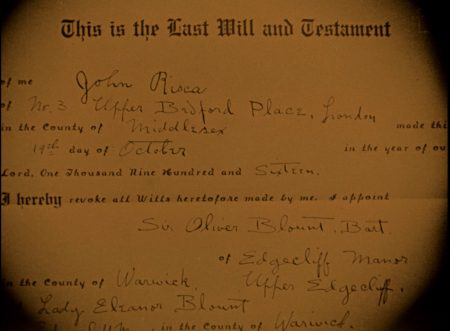 This is the Last Will and Testament
of me John Risca
of No. 3 Upper Bedford Place, London
in the County of Middlesex made this
19th day of October in the year of ou
Lord, One Thousand Nine Hundred and Sixteen.
I hereby revoke all Wills heretofore made by me. I appoint
Sir Oliver Blount, Bart.
of Edgecliff Manor
in the County of Warwick. Upper Edgecliff,
Lady Eleanor Blount
in the County of Warwick.